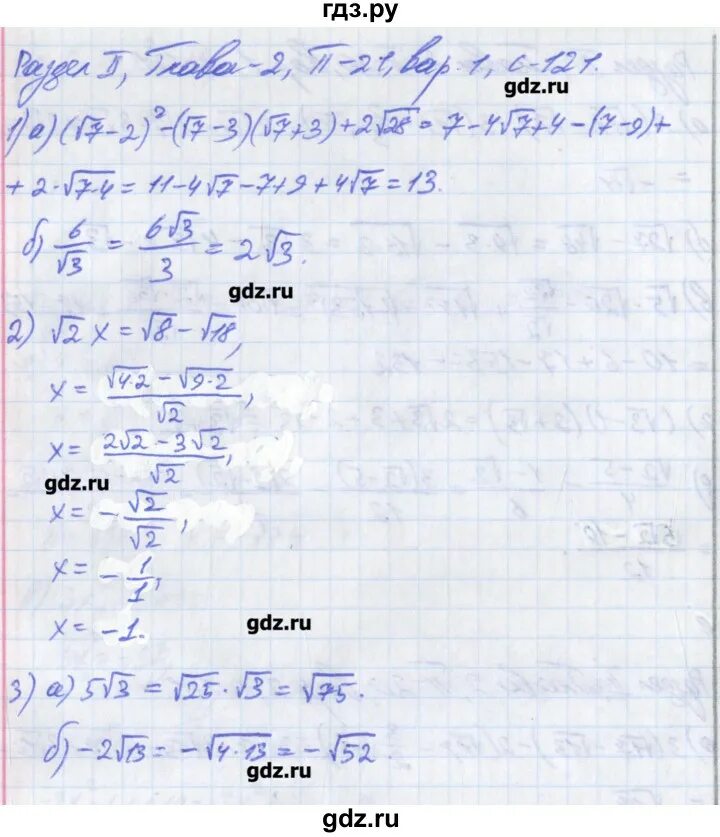 гдз.ру
Раздел II, Глава-2, П-21, вар. 1, С-121.
gdz.ru
1) а) (√7-2)² - (√7-3)(√7+3) + 2√28 = 7 - 4√7 + 4 - (7-9) +
+ 2·√7·4 = 11 - 4√7 - 7 + 9 + 4√7 = 13.
б) 6/√3 = 6√3/3 = 2√3.
gdz.ru
2) √2 x = √8 - √18,
x = (√4·2 - √9·2)/√2,
x = (2√2 - 3√2)/√2,
gdz.ru
x = - √2/√2,
x = - 1/1,
x = -1.
gdz.ru
3) а) 5√3 = √25 · √3 = √75.
б) -2√13 = -√4·13 = -√52
gdz.ru
gdz.ru